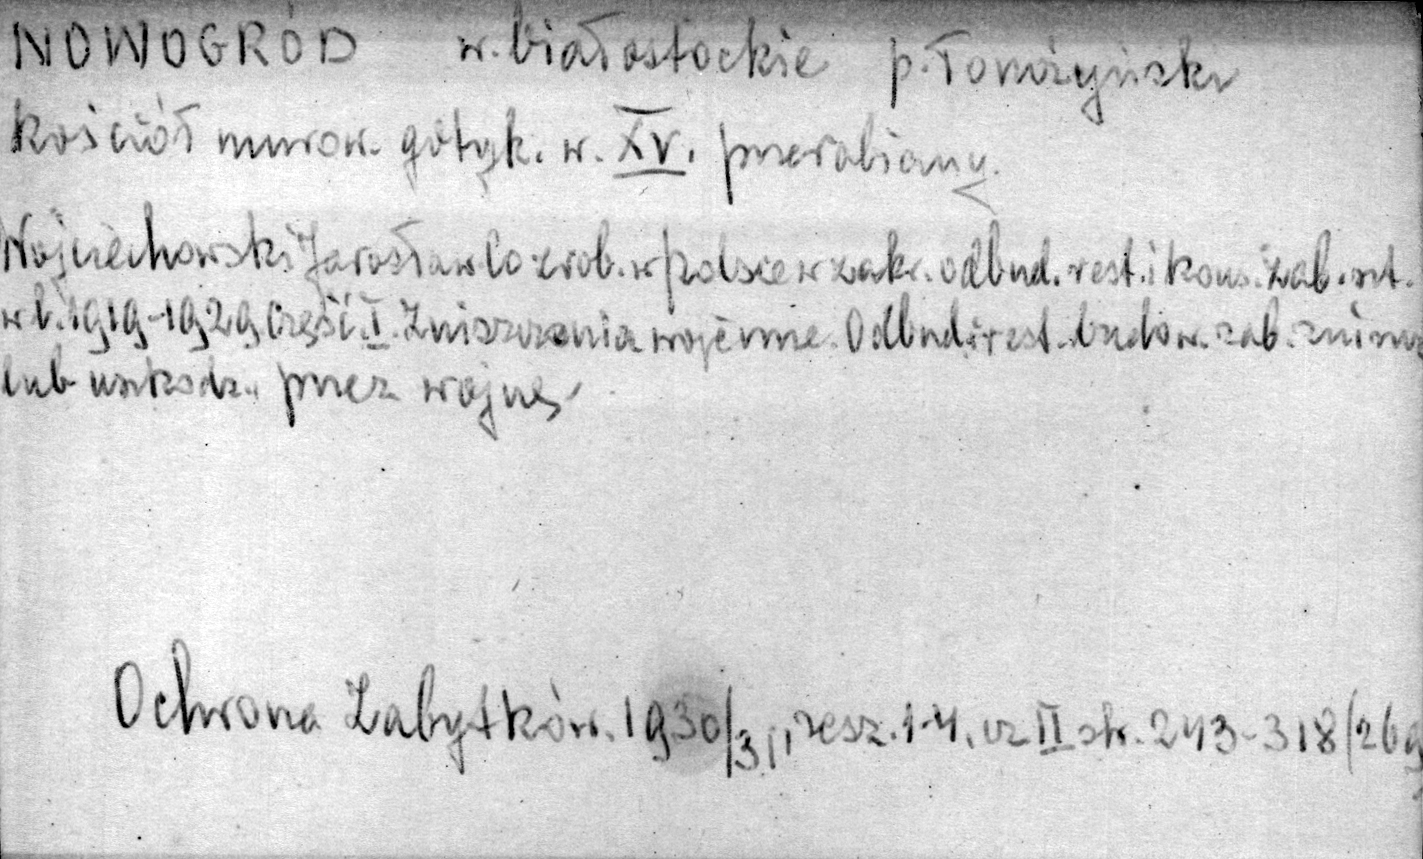 NOWOGRÓD w. białostockie p. łomżyński
kościół murow. gotyk. w. XV. przerabiany.
Wojciechowski Jarosław Co zrob. w Polsce w zakr. odbud. rest. i kons. zab. szt.
w l. 1919-1929 Część I. Zniszczenia wojenne. Odbud. i rest. budow. zab. zniszcz
lub uszkodz. przez wojnę
Ochrona Zabytków. 1930/31, zesz. 1-4, cz II str. 243-318 (269